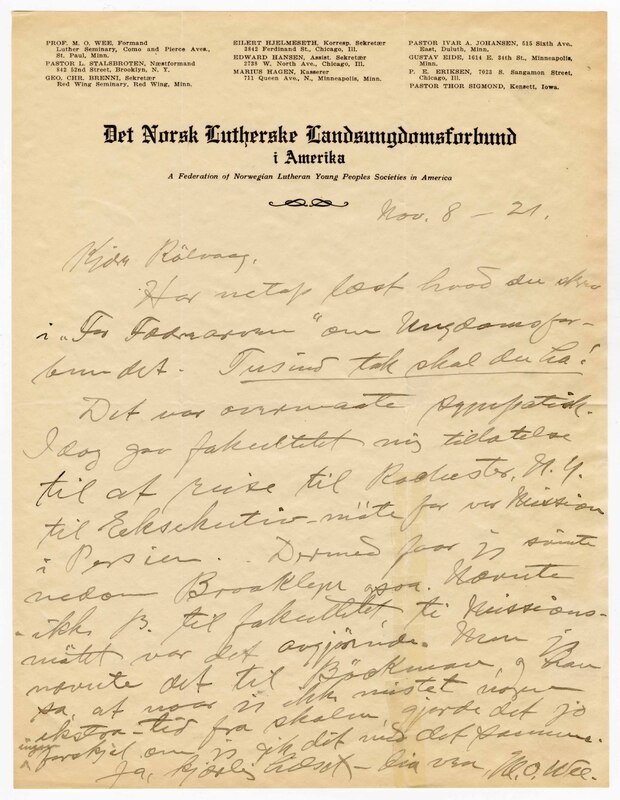 PROF. M. O. WEE, Formand
Luther Seminary, Como and Pierce Aves.,
St. Paul, Minn.
PASTOR L. STALSBROTEN, Næstformand
842 52nd Street, Brooklyn, N. Y.
GEO. CHR. BRENNI, Sekretær
Red Wing Seminary, Red Wing, Minn.
EILERT HJELMESETH, Korresp. Sekretær
3842 Ferdinand St., Chicago, Ill.
EDWARD HANSEN, Assist. Sekretær
2738 W. North Ave., Chicago, Ill.
MARIUS HAGEN, Kasserer
711 Queen Ave., N., Minneapolis, Minn.
PASTOR IVAR A. JOHANSEN, 515 Sixth Ave.,
East, Duluth, Minn.
GUSTAV EIDE, 1614 E. 34th St., Minneapolis,
Minn.
P. E. ERIKSEN, 7023 S. Sangamon Street,
Chicago, Ill.
PASTOR THOR SIGMOND, Kensett, Iowa.
Det Norsk Lutherske Landsungdomsforbund
i Amerika
A Federation of Norwegian Lutheran Young Peoples Societies in America
Nov. 8 – 21.
Kjære Rölvaag,
Har netop læst hvad du skrev
i "For Fædrearven" om Ungdomsfor-
bundet. Tusind tak skal du ha!
Det var overmaate sympatisk.
Idag gav fakultetet mig tillatelse
til at reise til Rochester, N.Y.
til Eksekutiv-möte for vor Mission
i Persien. Dermed faar jeg
nedom Brooklyn ogsaa. Nævnte
ikke B. til fakultetet ti Missions-
mötet var det avgjörende. Men jeg
nævnte det til Böckman, og han
sa, at naar vi ikke mistet nogen
ekstra-tid fra skolen, gjorde det jo
ingen forskjel om vi fik dit med det samme.
Ja, kjærlig hilset – din ven, M.O. Wee.